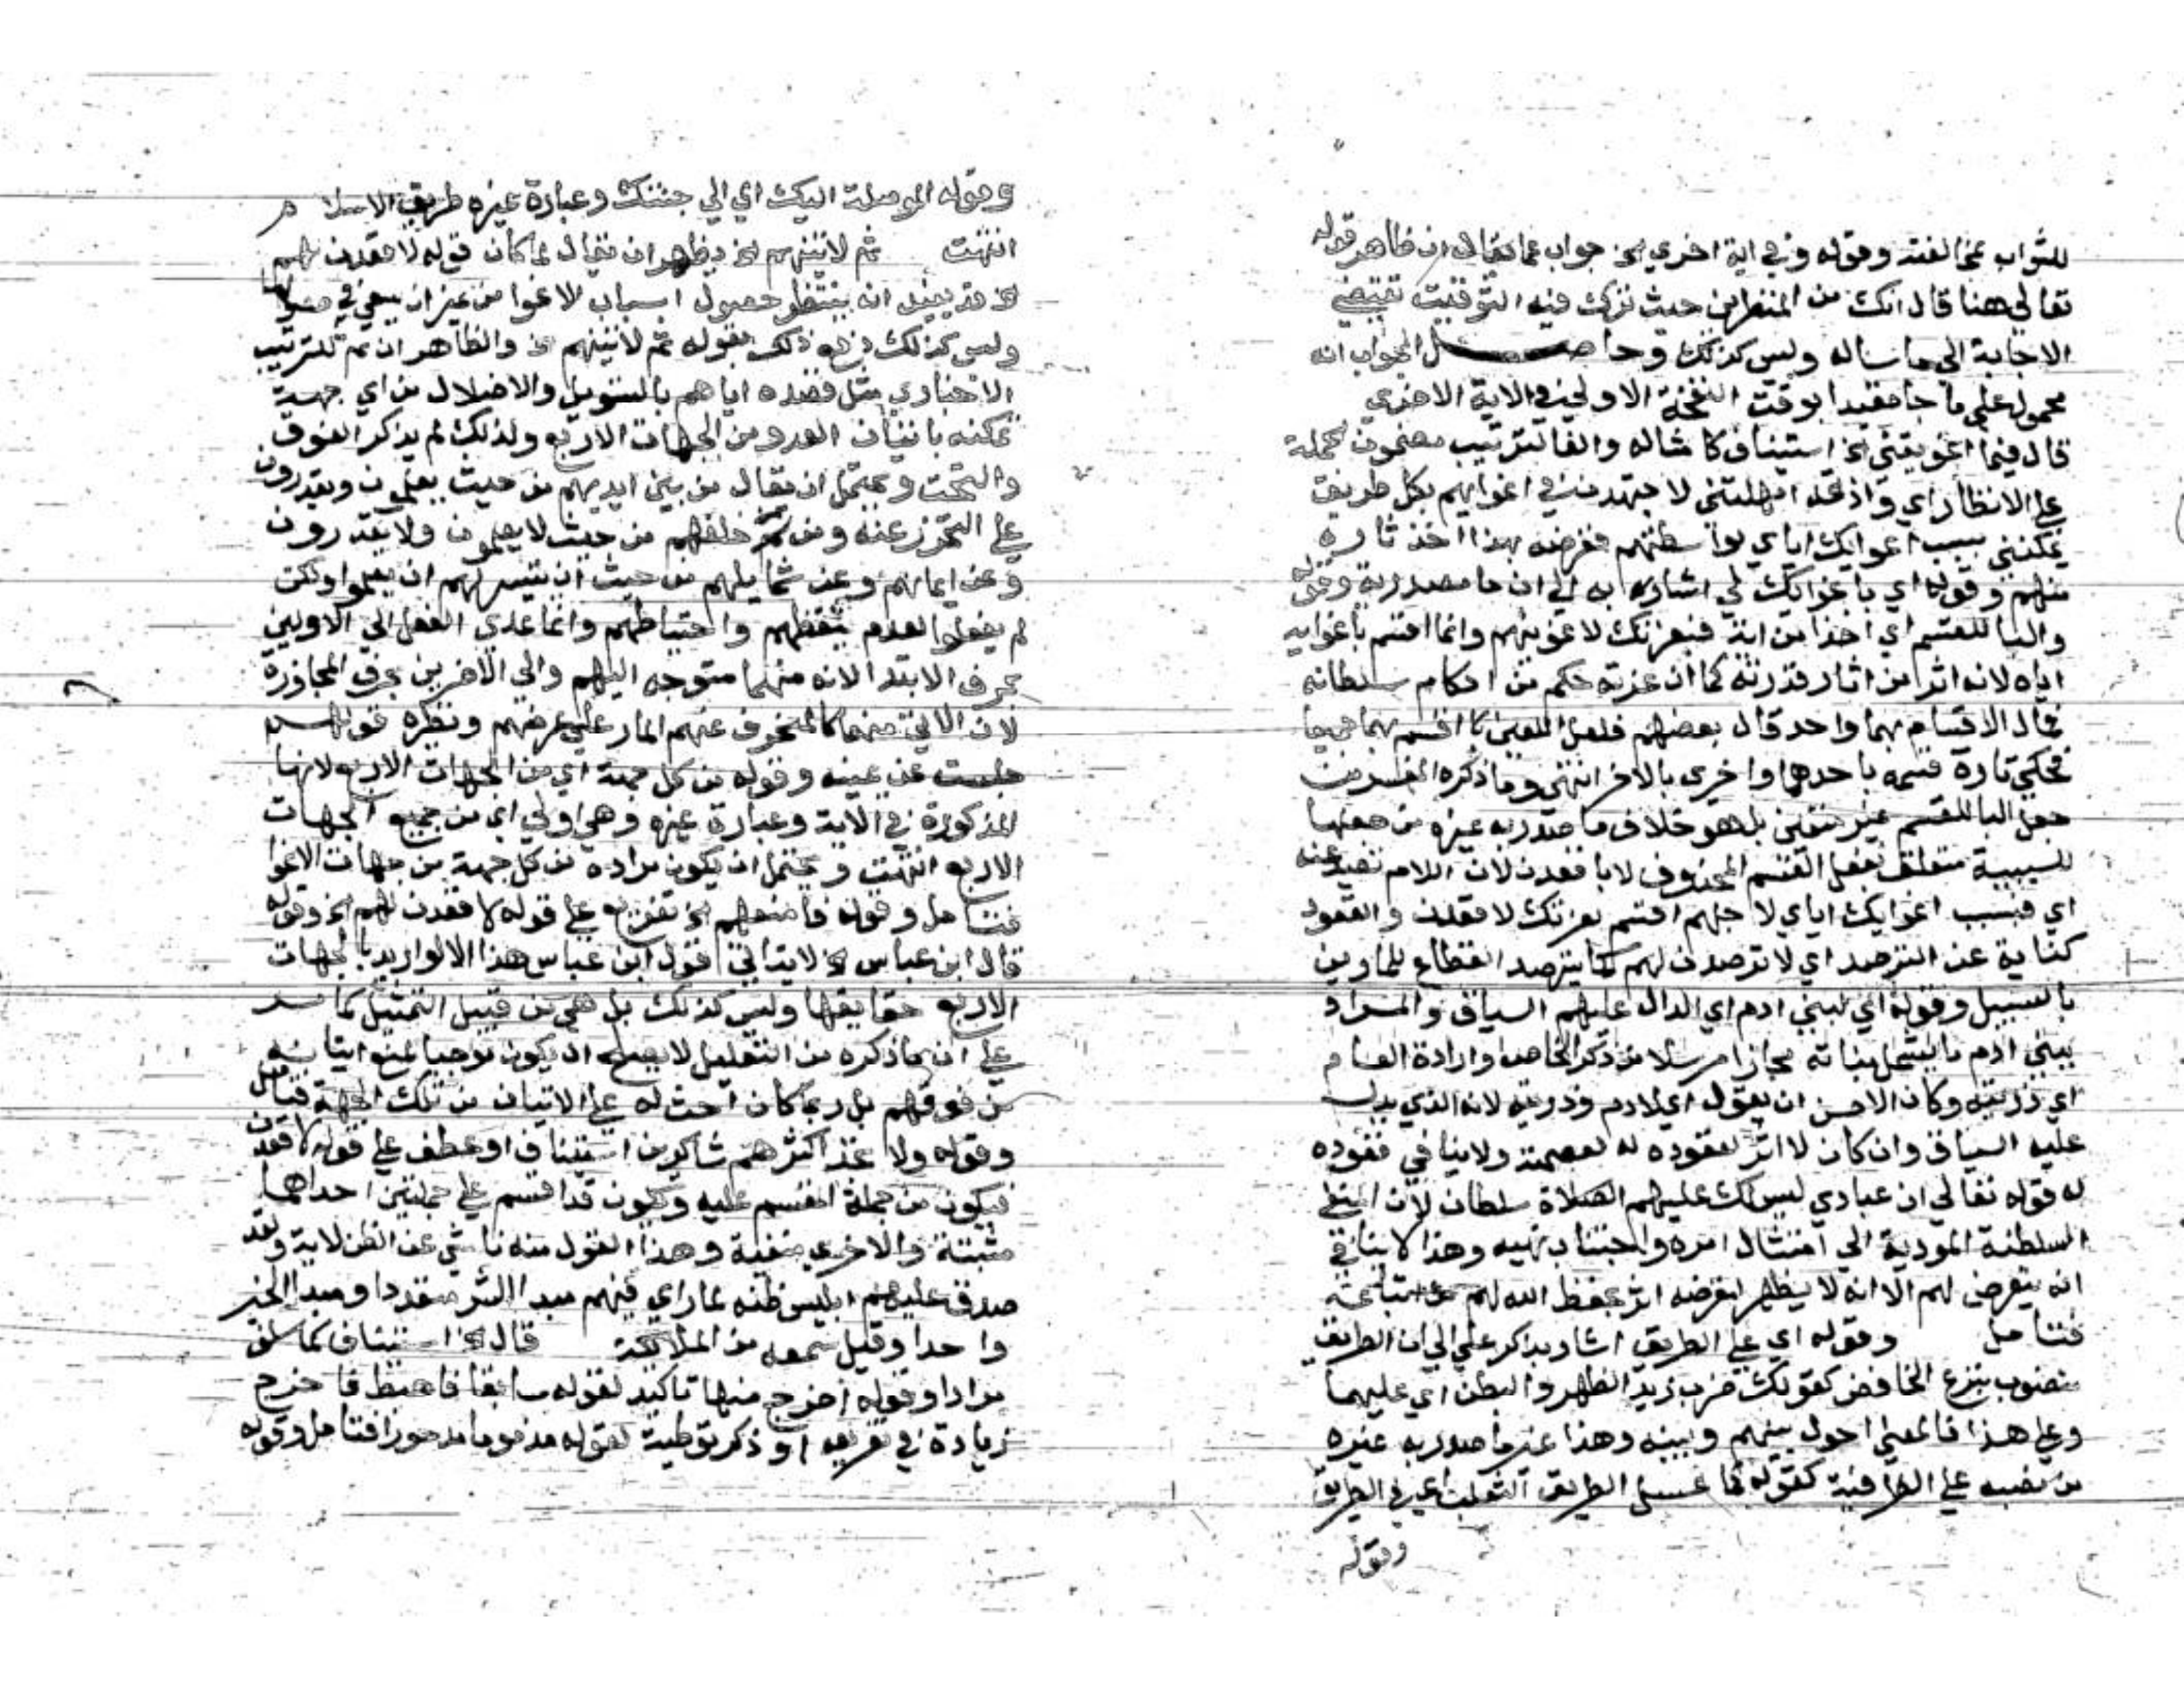 للثواب بمخالفته وقوله وفي اية اخري الخ جواب عما يقال ان ظاهر قوله
تعالي هنا قال انك من المنظرين حيث ترك فيه التوقيت تقتضي
الاجابة الي ما ساله وليس كذلك وحاصل الجواب انه
محمول علي ما جا مقيدا بوقت النفخة الاولي في الاية الاخري
قال فبما اغويتني الخ استيناف كامثاله والفا لترتيب مضمون الجملة
علي الانظار اي واذ قد امهلتني لاجتهدن في اغوايهم بكل طريق
يمكنني بسبب اغوايك اياي بواسطتهم فغرضه بهذا اخذ ثاره
منهم وقوله اي باغوايك لي اشار به الي ان ما مصدرية وقوله
والبا للقسم اي اخذا من اية فبعزتك لاغوينهم وانما اقسم باغوايه
اياه لانه اثر من اثار قدرته كما ان عزته حكم من احكام سلطانه
فمال الاقسام بهما واحد قال بعضهم فلعل اللعين اقسم بهما جميعا
فحكي تارة قسمه باحدهما واخري بالاخر انتهي وما ذكره المفسر من
جعل البا للقسم غير متعين بل هو خلاف ما صدر به غيره من جعلها
للسببية متعلقة بفعل القسم المحذوف لا باقعدن لان اللام تصد عنه
اي فبسبب اغوايك اياي لاجلهم اقسم بعزتك لاقعدن والقعود
كناية عن الترصد اي لاترصدن لهم كما يترصد القطاع للمارين
بالسبيل وقوله اي لبني ادم اي الدال عليهم السياق والمراد
ببني ادم ما يشمل بناته مجازا مرسلا من ذكر الخاص وارادة العام
اي ذريته وكان الاحسن ان يقول اي لادم وذريته لانه الذي يدل
عليه السياق وان كان لا اثر لقعوده له لعصمته ولا ينافي قعوده
له قوله تعالي ان عبادي ليس لك عليهم الصلاة سلطان لان المنفي
السلطنة المودية الي امتثال امره واجتناب نهيه وهذا لا ينافي
انه يتعرض لهم الا انه لا يظهر لتعرضه اثر بحفظ الله لهم عن متابعته
فتامل وقوله اي علي الطريق اشار بذكر علي الي ان الطريق
منصوب بنزع الخافض كقولك ضرب زيد الظهر والبطن اي عليهما
وعلي هذا فالمعني احول بينهم وبينه وهذا غير ما صدر به غيره
من نصبه علي الظرفية كقوله كما عسل الطريق الثعلب اي في الطريق
وقوله
وقوله الموصلة اليك اي الي جنتك وعبارة غيره طريق الاسلام
انتهت ثم لاتينهم الخ يظهر ان يقال لما كان قوله لاقعدن لهم
الخ قد يفيد انه ينتظر حصول اسباب الاغوا من غير ان يسعي في حصولها
وليس كذلك دفع ذلك بقوله ثم لاتينهم الخ والظاهر ان ثم للترتيب
الاخباري مثل قصده اياهم بالتسويل والاضلال من اي جهة
تمكنه باتيان العدو من الجهات الاربع ولذلك لم يذكر الفوق
والتحت ويحتمل ان يقال من بين ايديهم من حيث يعلمون ويقدرون
علي التحرز عنه ومن خلفهم من حيث لا يعلمون ولا يقدرون
وعن ايمانهم وعن شمايلهم من حيث ان يتيسر لهم ان يعلموا ولكن
لم يفعلوا لعدم تيقظهم واحتياطهم وانما عدي الفعل الي الاوليين
بحرف الابتدا لانه منهما متوجه اليهم والي الاخريين بحرف المجاوزة
لان الاتي منهما كالمنحرف عنهم المار علي عرضهم ونظيره قولهم
جلست عن يمينه وقوله من كل جهة اي من الجهات الاربع لانها
المذكورة في الاية وعبارة غيره وهي اولي اي من جميع الجهات
الاربع انتهت ويحتمل ان يكون مراده من كل جهة من جهات الاغوا
فتامل وقوله فامنعهم الخ تفريع علي قوله لاقعدن لهم الخ وقوله
قال ابن عباس الخ لا يتاتي قول ابن عباس هذا الا لو اريد بالجهات
الاربع حقايقها وليس كذلك بل هي من قبيل التمثيل كما مر
علي ان ما ذكره من التعليل لا يصلح ان يكون موجبا لمنع اتيانه
من فوقهم بل ربما كان احث له علي الاتيان من تلك الجهة فتامل
وقوله ولا تجد اكثرهم شاكرين استيناف او عطف علي قوله لاقعدن
فيكون من جملة المقسم عليه ويكون قد اقسم علي جملتين احداهما
مثبتة والاخري منفية وهذا القول منه ناشي عن الظن لاية ولقد
صدق عليهم ابليس ظنه لما راي فيهم مبدا الشر متعددا ومبدا الخير
واحدا وقيل سمعه من الملايكة قال الخ استيناف كما سلف
مرارا وقوله اخرج منها تاكيد لقوله سابقا فاهبط فاخرج
زيادة في تقريعه او ذكر توطية لقوله مذموما مدحورا فتامل وقوله